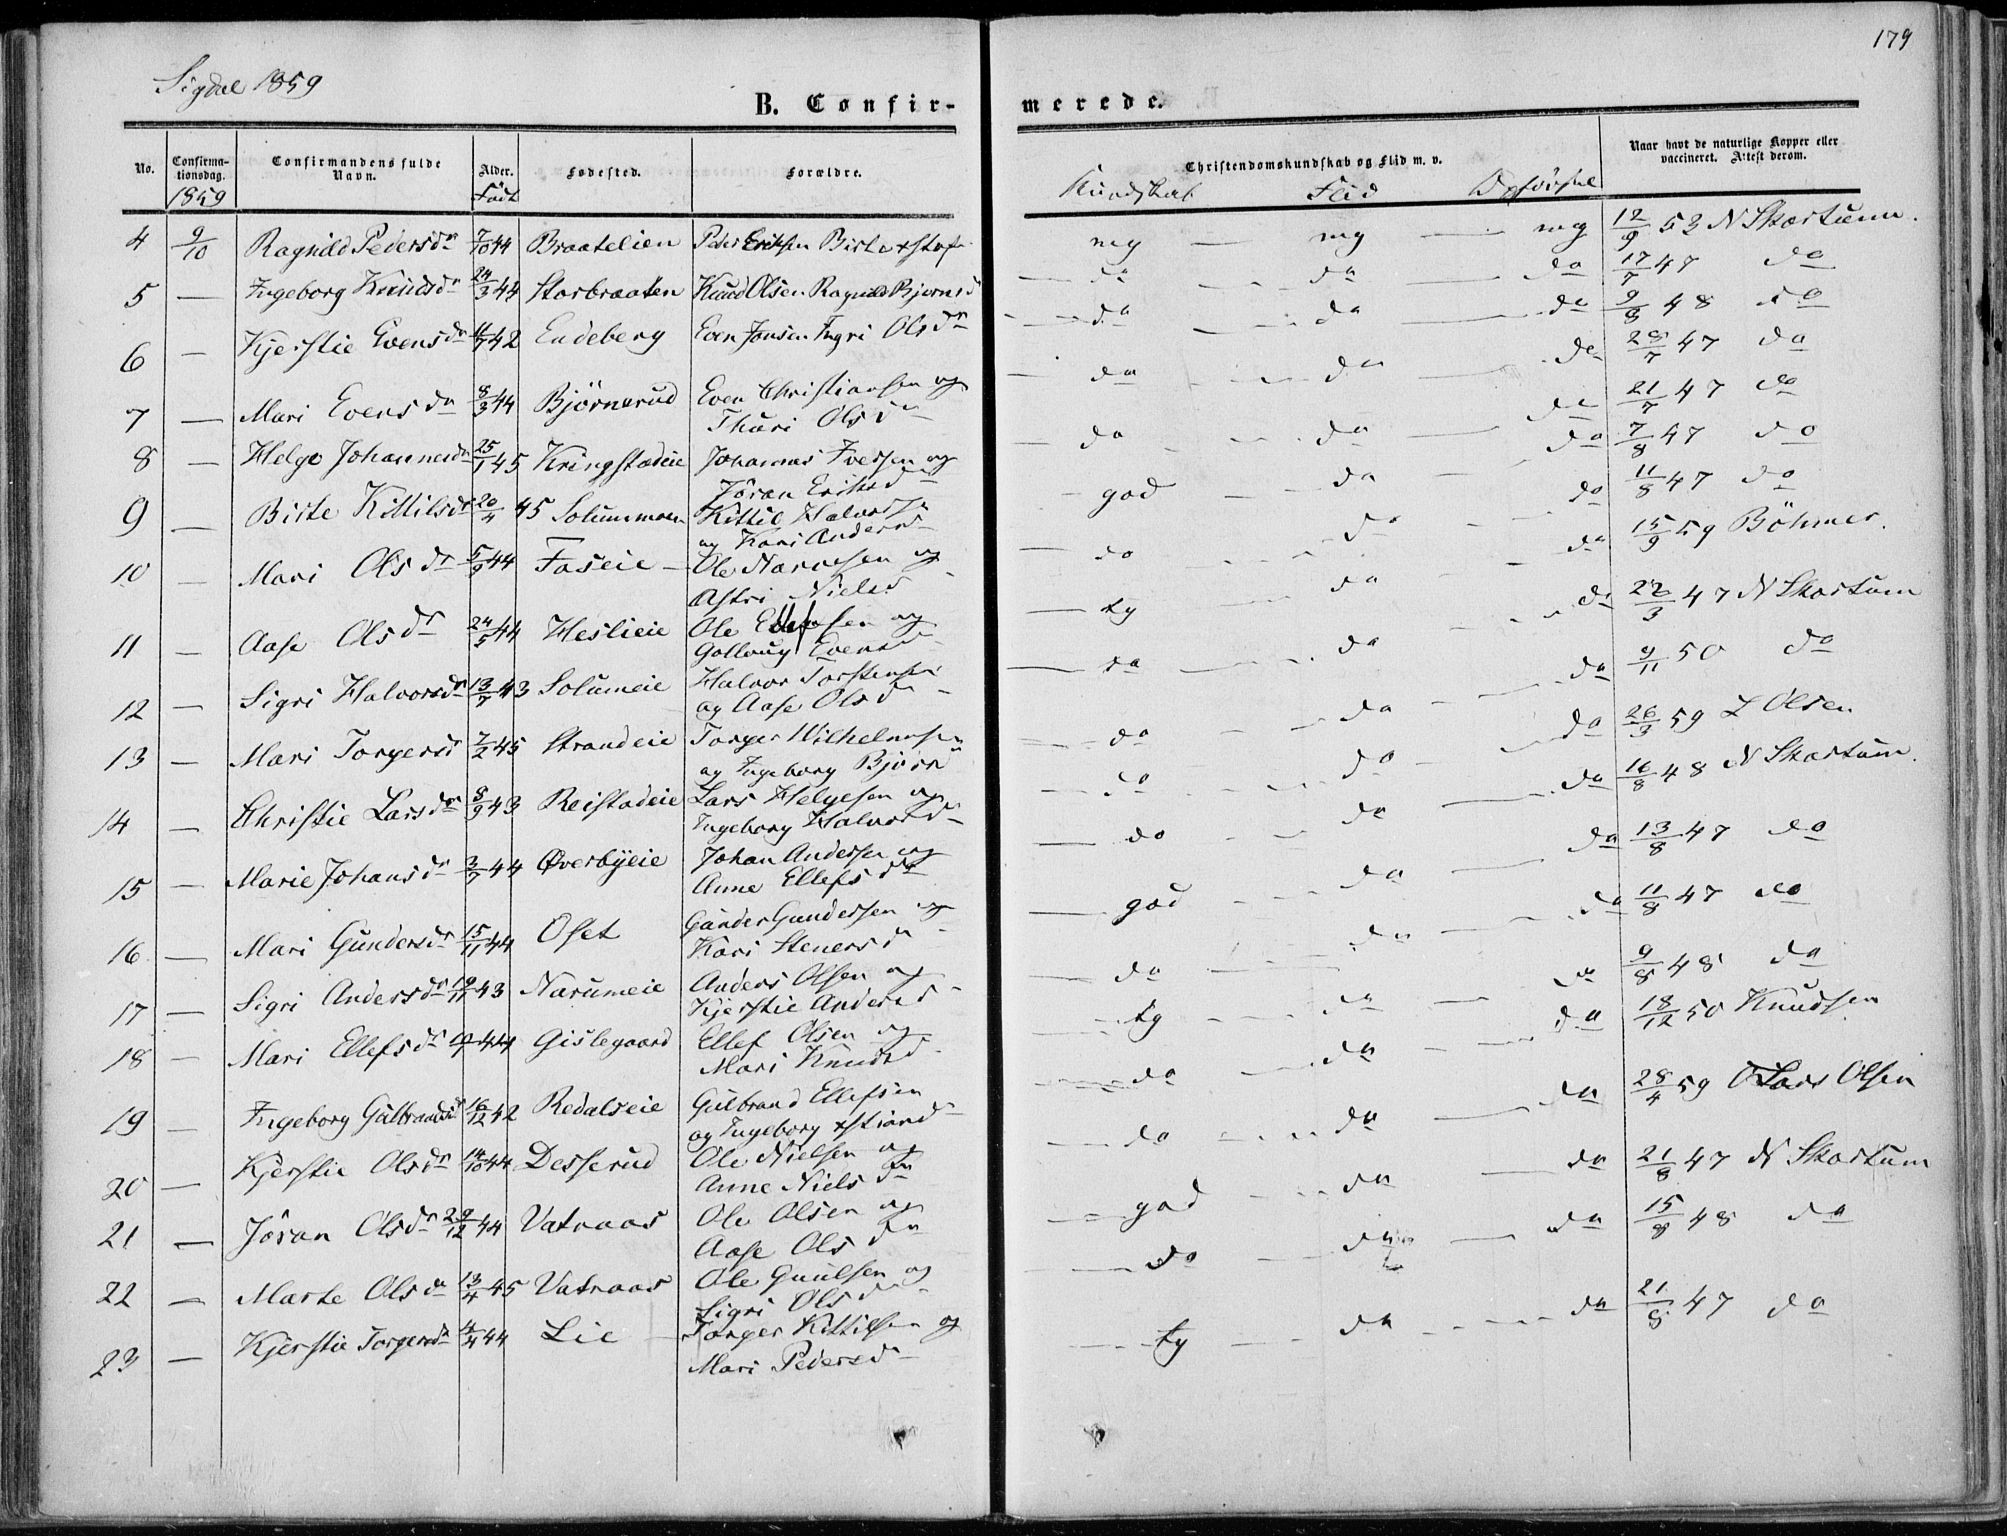 179
Sigdal 1859
B. Confir-
merede.
No.
Confirma-
tionsdag.
1859
Confirmandens fulde
Navn.
Alder.
Födt
Fødested.
Forældre.
Christendomskundskab og Flid m. v.
Kundskab Flid Opförsel
Naar havt de naturlige Kopper eller
vaccineret. Attest derom.
4 9/10 Ragnild Pedersdr 7/10 44 Braatelien Peder Eriksen Birte
mg mg mg 12/9 53 N Skartum.
5 — Ingeborg Knudsdr 24/3 44 Storbraaten Knud Olsen Ragnild Bjornsd
do do do 17/7 47 do
6 — Kjerstie Evensdr 42 Endeberg Even Jonsen Ingri Olsdr
do do do 9/8 48 do
7 — Mari Evensdr 8/3 44 Björnerud Even Christiansen og
Thuri Olsdr
do do do 28/7 47 do
8 — Helge Johannesdr 25/1 45 Kringstadeie Johannes Iversen og
Jöran Eriksd
do do do 21/7 47 do
9 — Birte Kittilsdr 20/4 45 Solummoen Kittil Halvorsen
og Kari Andersd
god do do 7/8 47 do
10 — Mari Olsdr 5/9 44 Faseie Ole Narvesen og
Astri Nielsd
do do do 11/8 47 do
11 — Aase Olsdr 24/5 44 Heslieie Ole Ellefsen og
Gollaug Evensd
tg do do 15/9 59 Böhmer.
12 — Sigri Halvorsdr 13/7 43 Solumeie Halvor Torstensen
og Aase Olsdr
do do do 22/3 47 N Skartum
13 — Mari Torgersd 7/2 45 Strandeie Torger Wilhelmsen
og Ingeborg Björn
do do do 9/11 50 do
14 — Christie Larsdr 8/9 43 Reistadeie Lars Helgesen og
Ingeborg Halvorsd
do do do 26/3 59 L Olsen
15 — Marie Johansdr 3/7 44 Øverbyeie Johan Andersen og
Anne Ellefsdr
do do do 16/8 48 N Skartum.
16 — Mari Gundersdr 15/11 44 Oset Gunder Gundersen og
Kari Stenersdr
god do do 13/8 47 do
17 — Sigri Andersdr 19/11 43 Narumeie Anders Olsen og
Kjerstie Andersd
do do do 11/8 47 do
18 — Mari Ellefsdr 44 Gislegaard Ellef Olsen og
Mari Knudsd
tg do do 9/8 48 do
19 — Ingeborg Gulbrandsd 16/12 42 Redalseie Gulbrand Ellefsen
og Ingeborg
do do do 18/12 50 Knudsen
20 — Kjerstie Olsdr 14/10 44 Desserud Ole Nielsen og
Anne Nielsdr
do do do 28/4 59 Lars Olsen
21 — Jöran Olsdr 29/12 44 Vatnaas Ole Olsen og
Aase Olsdr
god do do 21/8 47 N Skartum
22 — Marte Olsdr 13/4 45 Vatnaas Ole Guulsen og
Sigri Olsdr
do do do 15/8 48 do
23 — Kjerstie Torgersdr 44 Lie Torger Kittilsen og
Mari Pedersdr
tg do do 21/8 47 do